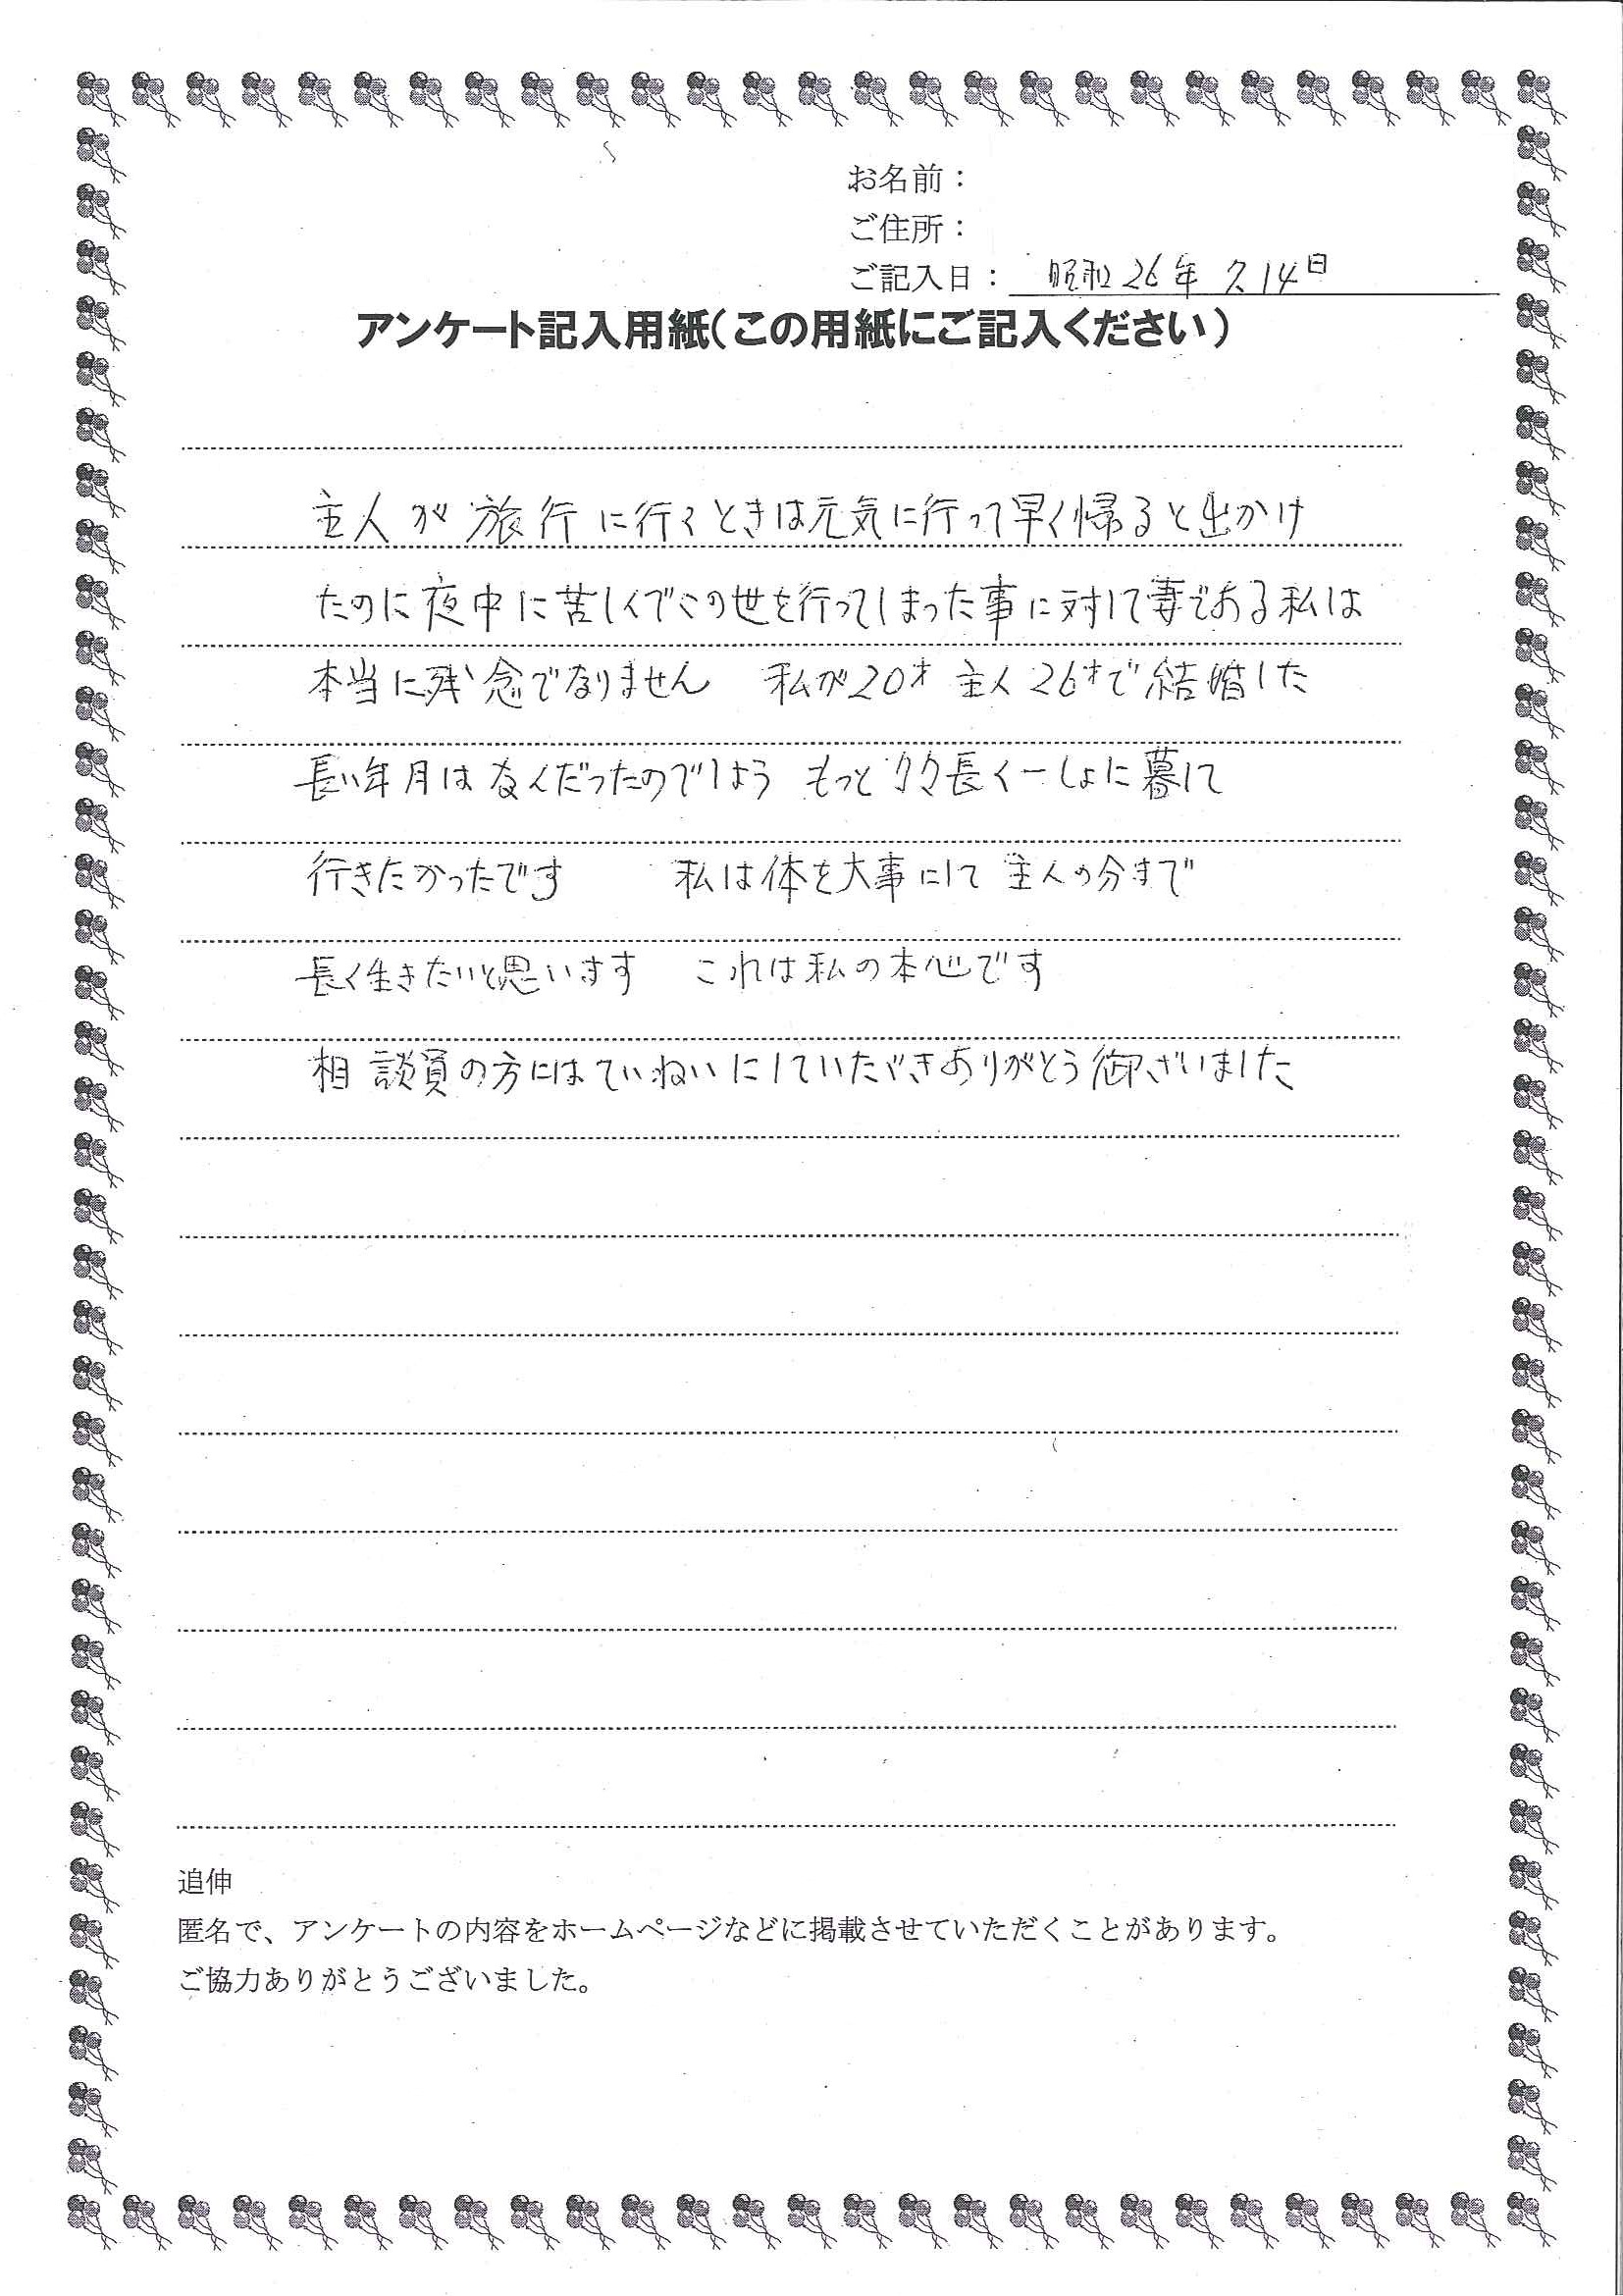 お名前：
ご住所：
ご記入日： 昭和26年 7.14日
アンケート記入用紙（この用紙にご記入ください）
主人が旅行に行くときは元気に行って早く帰ると出かけ
たのに夜中に苦しんでこの世を行ってしまった事に対して妻である私は
本当に残念でなりません 私が20才 主人26才で結婚した
長い年月はなんだったのでしよう もっと 長く一しょに暮して
行きたかったです 私は体を大事にして 主人の分まで
長く生きたいと思います これは私の本心です
相談員の方にはていねいにしていただきありがとう御ざいました
追伸
匿名で、アンケートの内容をホームページなどに掲載させていただくことがあります。
ご協力ありがとうございました。